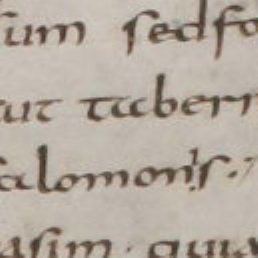 ium sed fo
ut tuberr
alomonis.
asim. quia